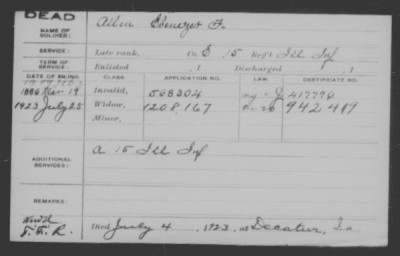 DEAD
NAME OF SOLDIER: Allen Ebenezer F.
SERVICE: Late rank, Co. E 15 Reg't Ill Inf
TERM OF SERVICE: Enlisted , 1 Discharged , 1
DATE OF FILING. CLASS. APPLICATION NO. LAW. CERTIFICATE NO.
1886 Mar 19 Invalid, 568304 417796
1923 July 25 Widow, 1208,167 942419
Minor,
ADDITIONAL SERVICES: A 15 Ill Inf
REMARKS:
Died July 4, 1923, at Decatur, Ia